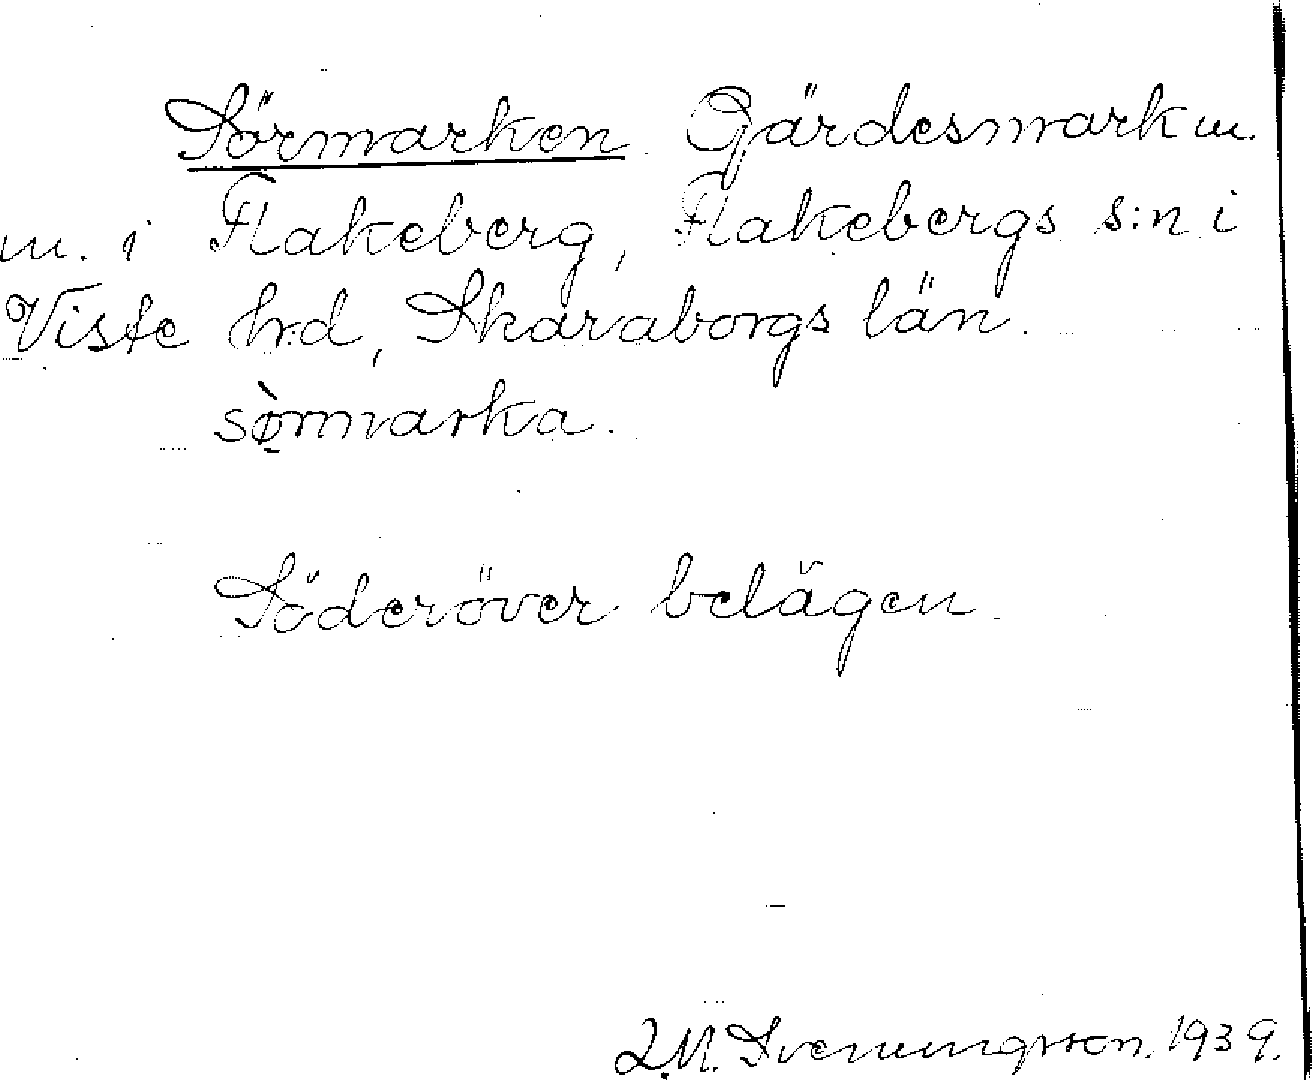 Sörmarken Gärdesmark m.
m. i Flakeberg, Flakebergs s:n i
Viste hrd, Skaraborgs län.
sø̀rmarka.
Söderöver belägen
L.M. Svenungsson. 1939.